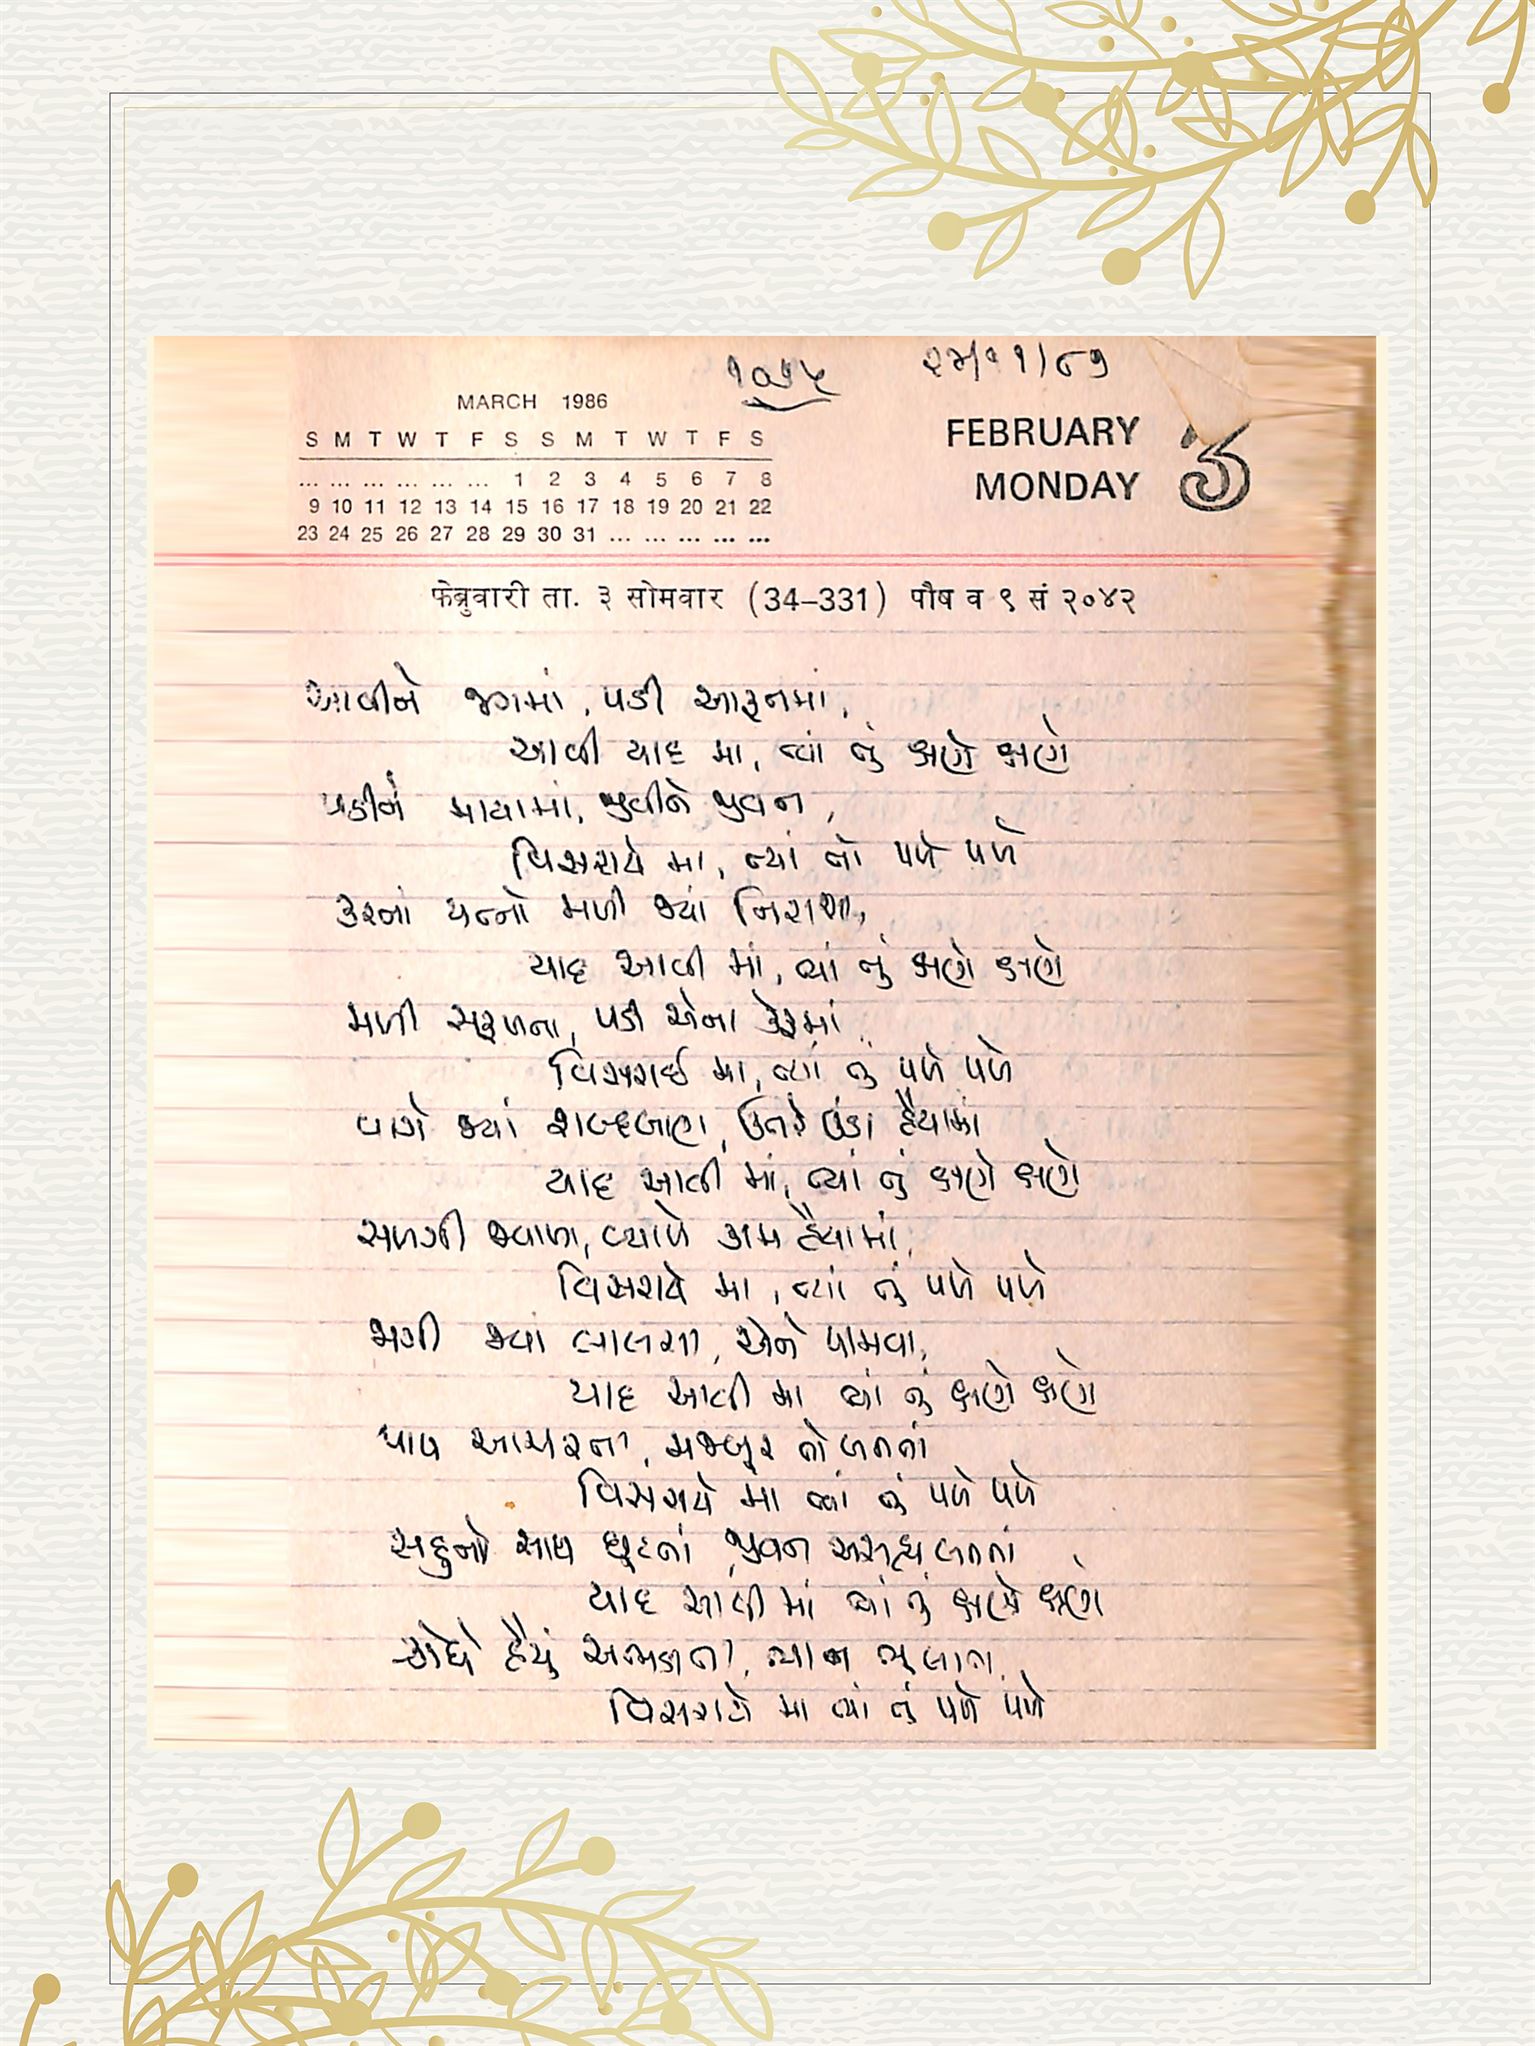 ૧૦૫૫ ૨૪/૧૧/૮૭
MARCH 1986
FEBRUARY 3
MONDAY
S M T W T F S S M T W T F S
... ... ... ... ... ... 1 2 3 4 5 6 7 8
9 10 11 12 13 14 15 16 17 18 19 20 21 22
23 24 25 26 27 28 29 30 31 ... ... ... ... ...
फेब्रुवारी ता. ३ सोमवार (34–331) पौष व ९ सं २०४२
આવીને જગમાં, પડી
આવી યાદ મા, ત્યાં તું ક્ષણે ક્ષણે
પડીને માયામાં, જીવીને જીવન,
વિસરાયે મા, ત્યાં તો પળે પળે
કરતાં યત્નો મળી જ્યાં નિરાશા,
યાદ આવી માં, ત્યાં તું ક્ષણે ક્ષણે
મળી સફળતા, પડી એના કેફમાં
વિસરાઈ મા, ત્યાં તું પળે પળે
વાગે જ્યાં શબ્દબાણ, ઉતરે ઉંડા હૈયામાં
યાદ આવી માં, ત્યાં તું ક્ષણે ક્ષણે
સળગી જ્વાળા, વ્યાપે કામ હૈયામાં,
વિસરાયે મા, ત્યાં તું પળે પળે
જાગી જ્યાં લાલસા, એને પામવા,
યાદ આવી મા ત્યાં તું ક્ષણે ક્ષણે
પાપ આચરતા, મજબૂર તો બનતાં
વિસરાયે મા ત્યાં તું પળે પળે
સહુનો સાથ છૂટતાં જીવન અસહ્ય બનતાં
યાદ આવી માં ત્યાં તું ક્ષણે ક્ષણે
ક્રોધે હૈયું
વિસરાયે મા ત્યાં તું પળે પળે